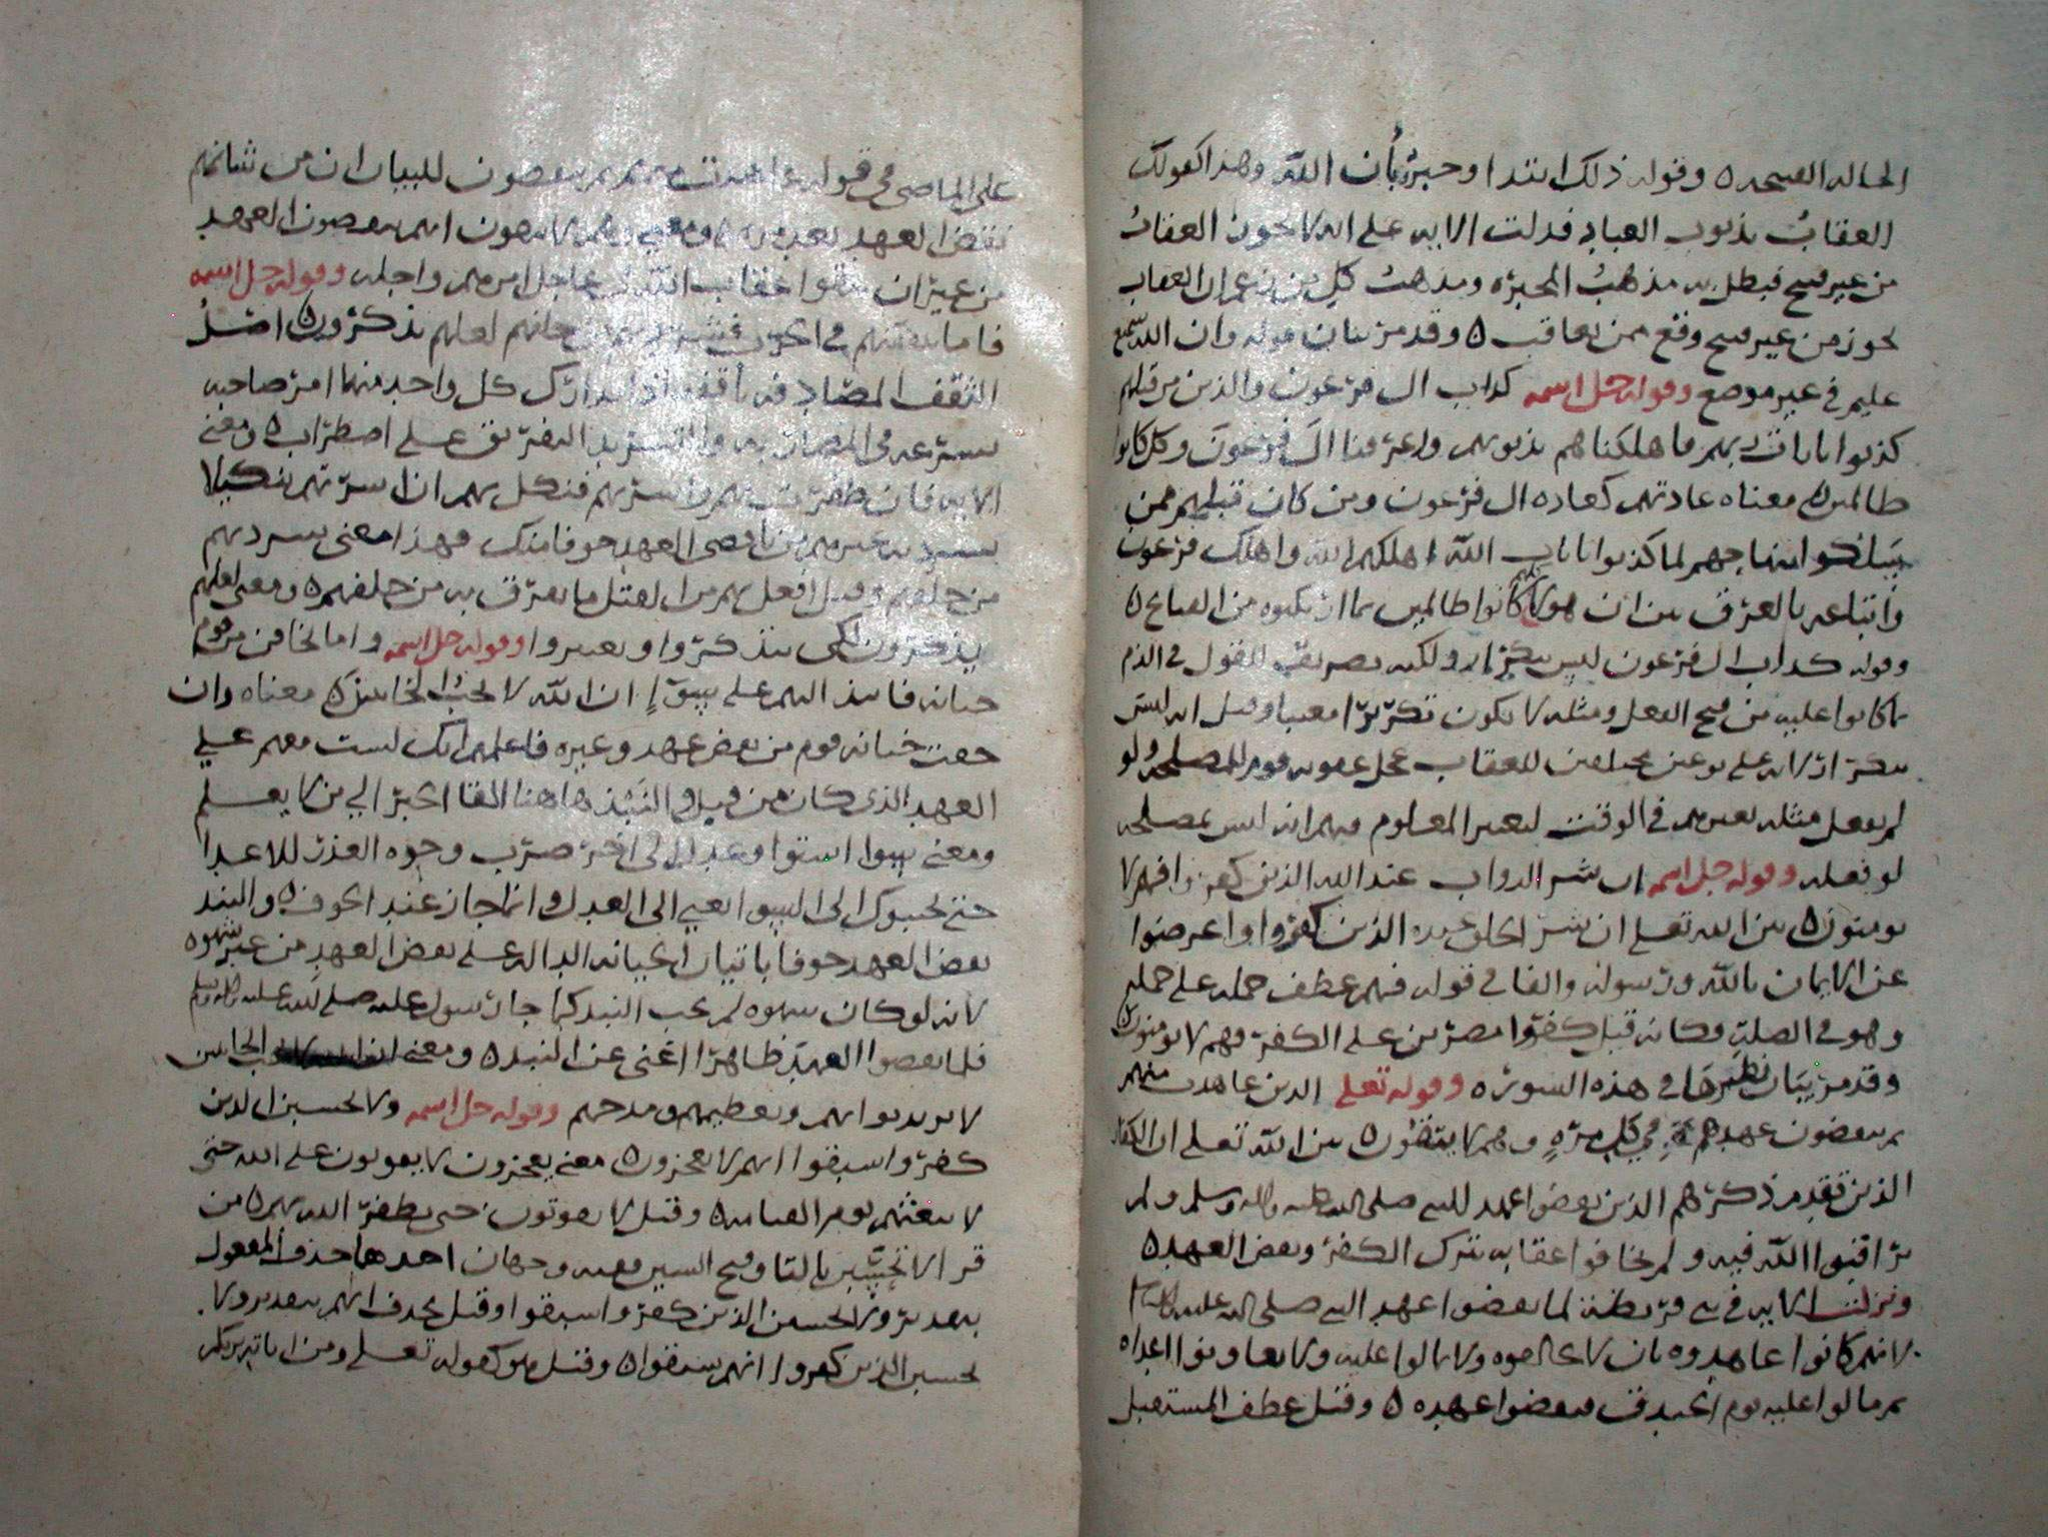 الحاله القبيحه ٥ وقوله ذلك ابتدا وخبره بأن الله وهذا كقولك
العقابُ بذنوب العباد فدلت الايه على انه لا يجوز العقابُ
من غير قبيح فبطل به مذهبُ المجبره ومذهبُ كل من زعم ان العقاب
يجوز من غير قبيح وقع ممن يعاقب ٥ وقد مر بيان قوله وان الله سميع
عليم في غير موضع وقوله جل اسمه كداب ال فرعون والذين من قبلهم
كذبوا بايات ربهم فاهلكناهم بذنوبهم واغرقنا ال فرعون وكل كانوا
ظالمين ٥ معناه عادتهم كعاده ال فرعون ومن كان قبلهم ممن
سلكوا منهاجهم لما كذبوا بايات الله اهلكهم الله واهلك فرعون
واتباعه بالغرق بين ان هولا كلهم كانوا ظالمين بما ارتكبوه من القبايح ٥
وقوله كداب ال فرعون ليس بتكرار ولكنه تصريف للقول في الذم
بما كانوا عليه من قبيح الفعل ومثله لا يكون تكريرا معيبا وقيل انه ليس
بتكرار لانه على نوعين مختلفين للعقاب عجل عقوبه قوم للمصلحه ولو
لم يفعل مثله بغيرهم في الوقت لتغير المعلوم فيهم انه ليس بمصلحه
لو فعله وقوله جل اسمه ان شر الدواب عند الله الذين كفروا فهم لا
يومنون ٥ بين الله تعلى ان شر الخلق عنده الذين كفروا واعرضوا
عن الايمان بالله ورسوله والفا في قوله فهم عطف جمله على جمله
وهو في الصله وكانه قيل كفروا مصرين على الكفر فهم لا يومنون ٥
وقد مر بيان نظيرها في هذه السوره وقوله تعلى الذين عاهدت منهم
ثم ينقضون عهدهم في كل مرهٍ وهم لا يتقون ٥ بين الله تعلى ان الكفار
الذين تقدم ذكرهم الذين نقضوا عهد النبي صلى الله عليه واله وسلم ولم
يراقبوا الله فيه ولم يخافوا عقابه بترك الكفر ونقض العهد ٥
ونزلت الايه في بني قريظه لما نقضوا عهد النبي صلى الله عليه
لانهم كانوا عاهدوه بان لا يحالفوه ولا يمالوا عليه ولا يعاونوا اعداه
ثم مالوا عليه يوم الخندق فنقضوا عهده ٥ وقيل عطف المستقبل
على الماضي في قوله عاهدت منهم ثم ينقضون للبيان ان من شانهم
نقض العهد بعد مره ومعنى وهم لا يتقون انهم ينقضون العهد
من غير ان يتقوا عقاب الله في عاجل امرهم واجله وقوله جل اسمه
فاما تثقفنهم في الحرب فشرد بهم من خلفهم لعلهم يذكرون ٥ اصل
الثقف المصادفه يا ثقفه اذا ادرك كل واحد منهما امر صاحبه
بسرعه في المصادفه والتشريد التفريق على اضطراب ٥ ومعنى
الايه فان ظفرت بهم واسرتهم فنكل بهم ان اسرتهم تنكيلا
يشرد به غيرهم من ناقضي العهد خوفا منك فهذا معنى يشرد بهم
من خلفهم وقيل افعل بهم من القتل ما يفرق به من خلفهم ٥ ومعنى لعلهم
يذكرون لكي يتذكروا ويعتبروا وقوله جل اسمه واما تخافن من قوم
خيانه فانبذ اليهم على سوآإ ان الله لا يحبُ الخاينين ٥ معناه وان
خفت خيانه قوم من نقض عهد وغيره فاعلمهم انك لست معهم على
العهد الذي كان من قبل والنبذ هاهنا القا الخبر الي من لا يعلم
ومعنى سوا استوا وعدل
حتى يجيبوك الى السوا يعني الى العدل وانما جاز عند الخوف ٥ والنبذ
بعض العهد خوفا باتيان الخيانه الداله على نقض العهد من غير شهره
لانه لو كان شهره لم يجب النبذ كما جا رسول عليه صلى الله عليه واله وسلم
فلما نقضوا العهد ظاهرا اغنى عن النبذ ٥ ومعنى لا يحب الخاينين
لا يريد ثوابهم وتعظيمهم ومدحهم وقوله جل اسمه ولا تحسبن الذين
كفروا سبقوا انهم لا يعجزون ٥ معنى يعجزون لا يفوتون على الله حتى
لا يبعثهم يوم القيامه ٥ وقيل لا يفوتون حتى يظفر الله بهم ٥ من
قرا لا تحسبن بالتا وفتح السين ففيه وجهان احدهما حذف المفعول
بتقدير ولا تحسبن الذين كفروا سبقوا وقيل بحذف انهم بتقدير ولا
تحسبن الذين كفروا انهم سبقوا ٥ وقيل هو كقوله تعلى ومن اياته يريكم